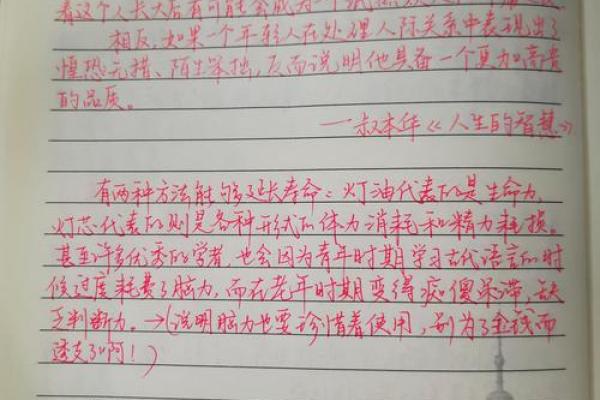 着这个人长大后有可能会成为一个
相反,如果一个年轻人在处理人际关系中表现出了
惶恐无措、陌生笨拙,反而说明他具备一个更加高贵
的品质。
—叔本华《人生的智慧》
有两种方法能够延长寿命:灯油代表的是生命力,
灯芯代表的则是各种形式的体力消耗和精力耗损。
甚至许多优秀的学者,也会因为青年时期学习古代语言的时
候过度耗费了脑力,而在老年时期变得痴傻呆滞,缺
乏判断力。→(说明脑力也要珍惜着使用,别为了金钱而
透支了啊!)